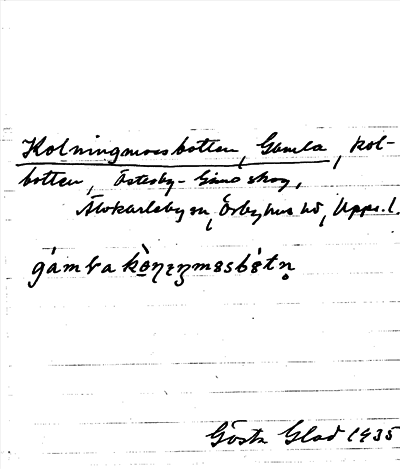 Kolningmossbotten, Gamla, kol-
botten, Österby-Gimo skog,
Älvkarleby sn, Örbyhus hd, Upps. l.
Gösta Glad 1935